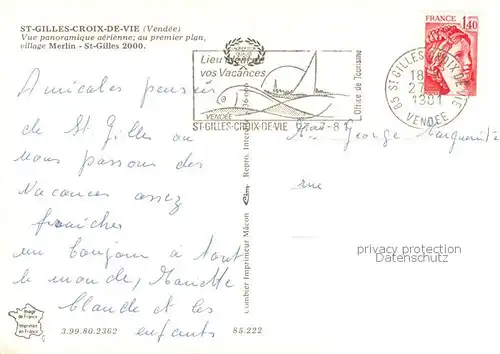 ST-GILLES-CROIX-DE-VIE (Vendée)
Vue panoramique aérienne; au premier plan,
village Merlin - St-Gilles 2000.
Lieu idéal de
vos Vacances
VENDÉE
ST-GILLES-CROIX-DE-VIE
Office de Tourisme
FRANCE 1,40
85 ST GILLES CROIX DE VIE
18
27
VENDÉE
Amicales pensées
de St Gilles ou
nous passons des
vacances assez
fraiches
un bonjour à tout
le monde, Mariette
blande et les
enfants
George Marguerite
rue
Combier Imprimeur Mâcon
privacy protection
Datenschutz
Image
de France
Imprimée
en France
3.99.80.2362
85.222